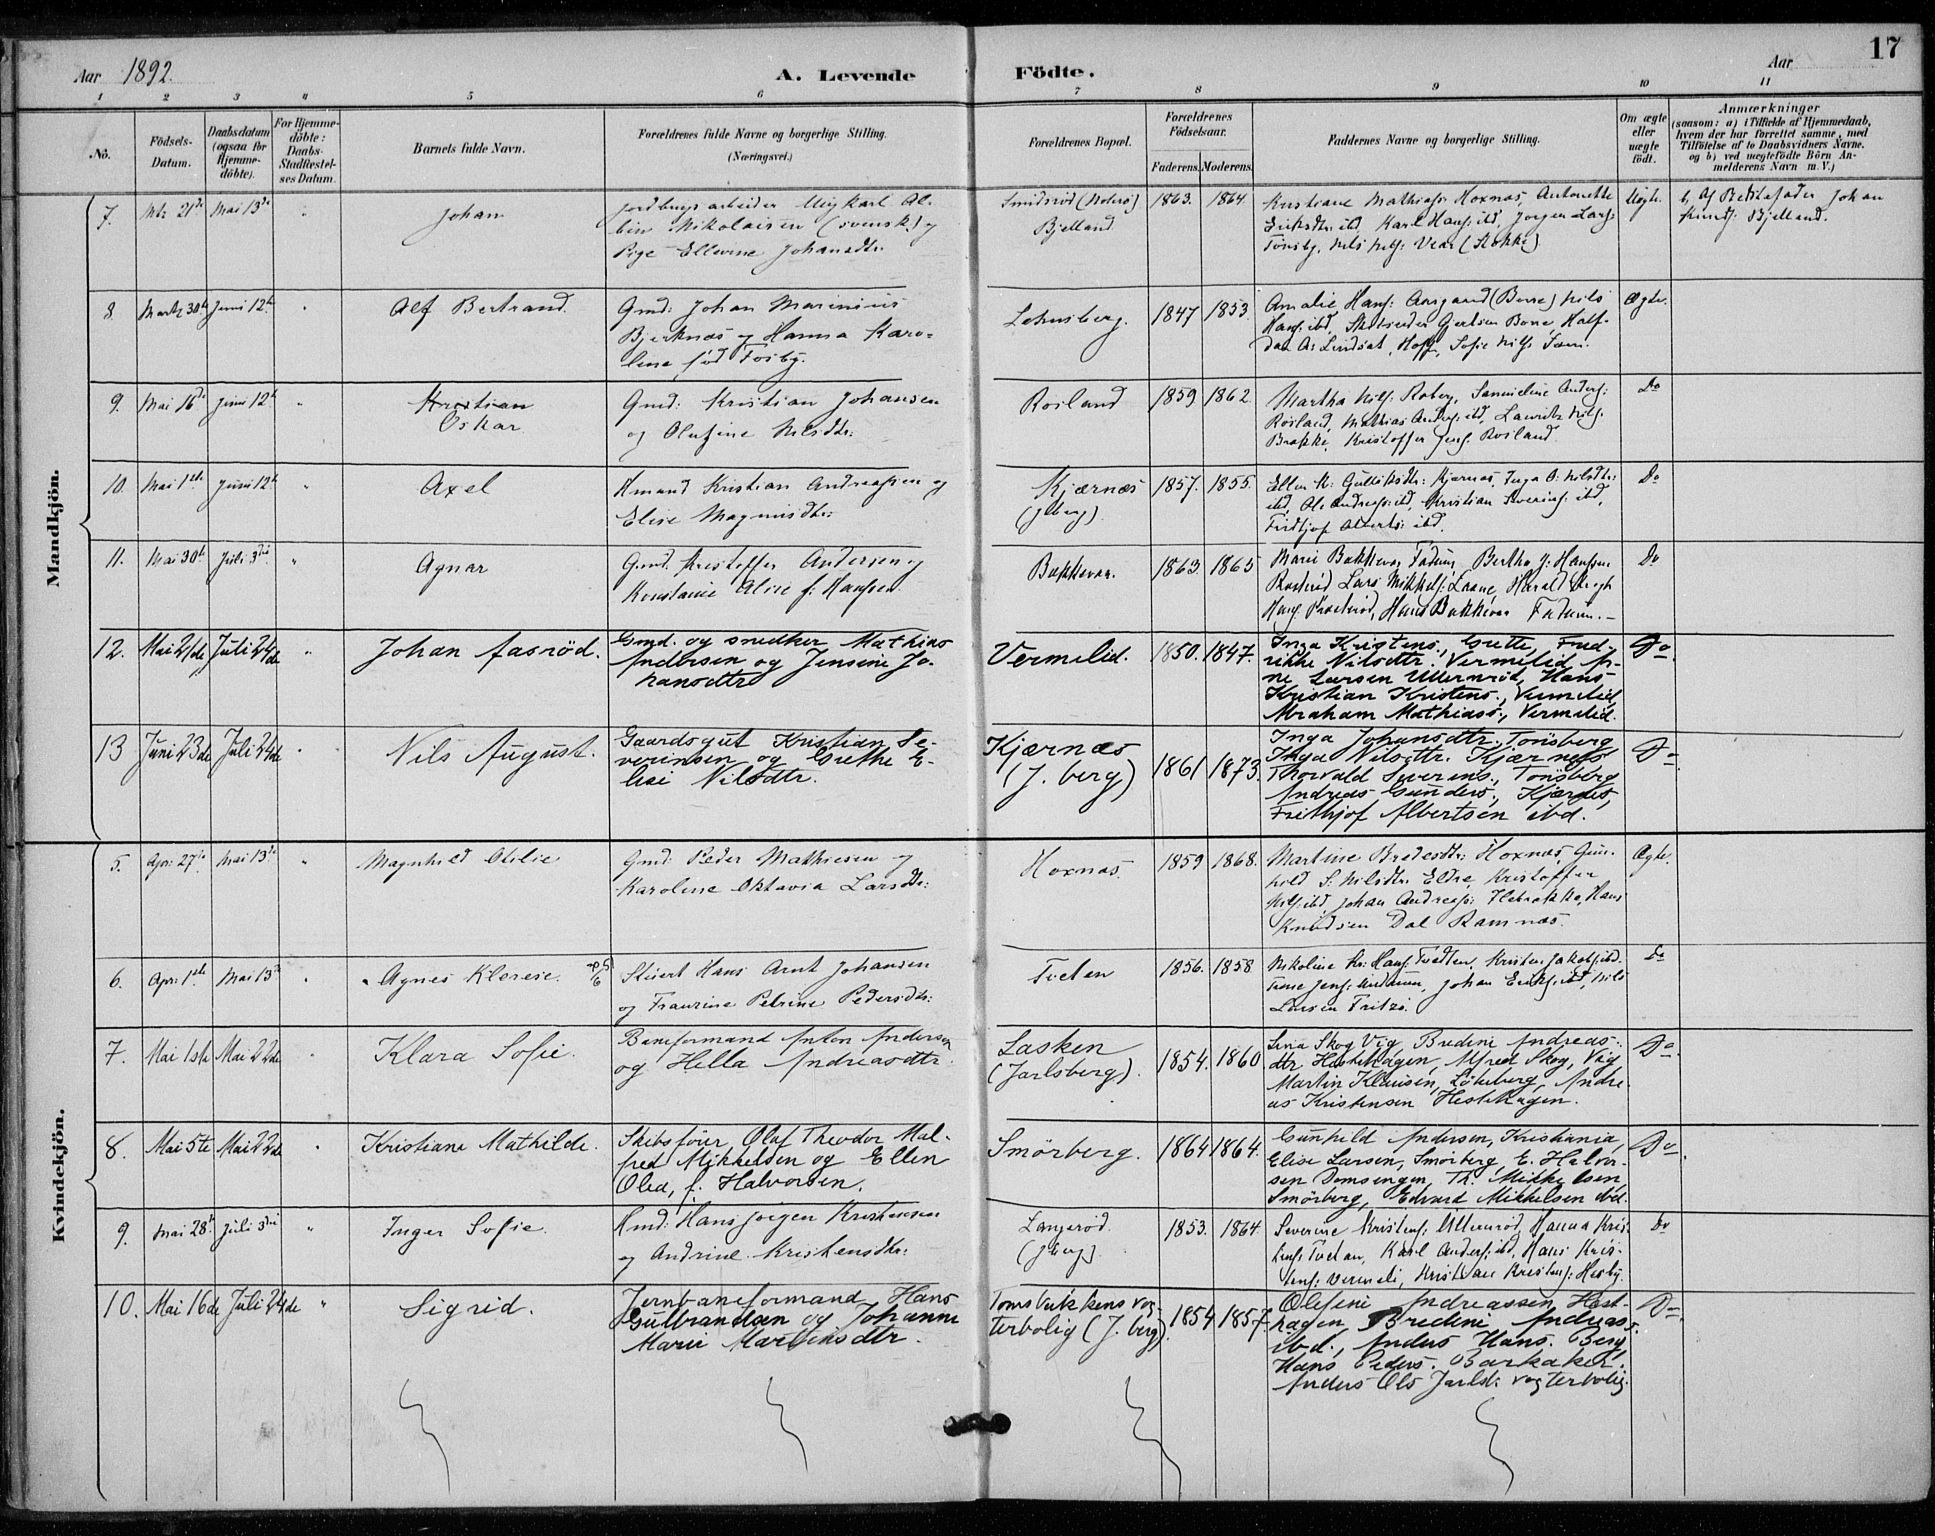 17
Aar 1892.
A. Levende Födte.
Aar
1 2 3 4 5 6 7 8 9 10 11
No.
Födsels-Datum.
Daabsdatum (ogsaa for Hjemme-döbte).
For Hjemme-döbte: Daabs-Stadfæstel-ses Datum.
Barnets fulde Navn.
Forældrenes fulde Navne og borgerlige Stilling.
(Næringsvei.)
Forældrenes Bopæl.
Forældrenes Födselsaar.
Faderens. Moderens.
Faddernes Navne og borgerlige Stilling.
Om ægte eller uægte födt.
Anmærkninger
(saasom: a) i Tilfælde af Hjemmedaab,
hvem der har forrettet samme, med
Tilföielse af to Daabsvidners Navne,
og b) ved uægtefödte Börn An-
melderens Navn m.V.)
Mandkjön.
7. Mts 21de Mai 13de " Johan
Jordbrugsarbeider Ungkarl Al-
bin Nikolaisen (svensk) og
Pige Ellevine Johansdtr.
Smidsröd (Nöterö)
Bjelland
1863. 1864.
Kristiane Mathiass: Hoxnæs, Antonette
Eriksdtr. ibd, Karl Hans: ibd, Jörgen Lars:
Tönsbg, Nils Nils: Vear (Stokke)
Uægte.
b, Af Bedstefader Johan
Knuds: Bjelland.
8. Marts 30te Juni 12te " Alf Bertrand.
Gmd: Johan Marinius
Bjerknæs og Hanna Karo-
line, föd Fosby.
Lensberg.
1847 1853.
Amalie Hans: Aasgaard (Borre) Nils
Hans: ibd, Gjertsen Borre, Half-
dan A: Lindset, Hoff, Sofie Nils: Sem.
Ægte.
9. Mai 16de Juni 12te " Kristian
Oskar
Gmd: Kristian Johansen
og Olufine Nilsdtr:
Rosland
1859 1862
Martha Nils: Roberg, Samueline Anders:
Rosland, Mathias Anders: ibd, Lauritz Nils:
Brække, Kristoffer Jens: Rosland.
Do
10. Mai 1ste Juni 12te " Axel
Hmand Kristian Andreassen og
Elise Magnusdtr:
Kjærnæs
(J.berg)
1857. 1855.
Ellen K: Gulliksdtr: Kjærnæs, Inga O: Nilsdtr:
ibd, Ole Andreas: ibd, Kristian Severins: ibd,
Fridtjof Alberts: ibd.
Do
11. Mai 30te Juli 3die " Agnar
Gmd. Kristoffer Andersen og
Konstanse Alise f: Hanssen.
Bakkevar.
1863. 1865
Marie Bakkevar Fadum, Bertha J: Hanssen
Roströd, Lars Mikkels: Laane, Harald Krogh
Hans: Roströd, Hans Bakkevar Fadum.
Do
12. Mai 21de Juli 24de " Johan Aasröd.
Gmd. og snedker Mathias
Andersen og Jensine Jo-
hansdtr
Vermelid.
1850. 1847.
Inga Kristens., Grette, Fred-
rikke Nilsdtr. Vermelid, A-
ne Larsen Ullernröd, Hans
Kristian Kristens., Vermelid,
Abraham Mathiass., Vermelid.
Do.
13 Juni 23de Juli 24de " Nils August.
Gaardsgut Kristian Se-
verinsen og Grethe E-
lise Nilsdtr.
Kjærnæs
(J. berg)
1861 1873.
Inga Johansdtr. Tönsberg
Inga Nilsdtr. Kjærnæs
Thorvald Severins., Tönsberg
Andreas Gunders., Kjærnæs,
Frithjof Albertsen ibd.
Do.
Kvindekjön.
5. Apr. 27de Mai 13de " Magnhild Otilie
Gmd: Peder Mathiesen og
Karoline Oktavia Larsdtr:
Hoxnæs.
1859 1868.
Martine Bredesdtr: Hoxnæs, Gun-
hild S: Nilsdtr. Eldre, Kristoffer
Nils: ibd, Johan Andreass: , Hans
Knudsen Dal Ramnæs.
Ægte.
6. Apr. 1ste Mai 13de " Agnes Klarise.
Stuert Hans Arnt Johansen
og Petrine Pedersdtr:
Tveten
1856. 1858
Nikoline Kr: Hans: Tvedten, Kristen Jakobs: ibd.
Trine Jens: , Johan Eriks: ibd, Nils
Larsen Fritzö.
Do
7. Mai 1ste Mai 22de " Klara Sofie.
Baneformand Anton Andersen
og Hella Andreasdtr
Lasken
(Jarlsberg).
1854. 1860
Lina Skog Vig, Bredine Andreas-
dtr. Hestehagen, Alfred Skog, Vig
Martin Klausen, Lökeberg, Andre
as Kristensen Hestehagen.
Do.
8. Mai 5te Mai 22de " Kristiane Mathilde.
Skibsförer Olaf Theodor Mal-
fred Mikkelsen og Ellen
Olea, f. Halvorsen.
Smörberg.
1864 1864.
Gunhild Andersen, Kristiania,
Elise Larsen, Smörberg, E. Halvor-
sen Domsengen, Th. Mikkelsen,
Smörberg, Edvard Mikkelsen ibd.
Do.
9. Mai 28de Juli 3die " Inger Sofie.
Hmd: Hans Jörgen Kristensen
og Andrine Kristensdtr:
Langeröd.
(J.berg)
1853. 1864.
Severine Kristens: Ullernröd, Hanna Kris-
tens: Tvetan, Karl Anders: ibd, Hans Kris-
tens: Vermeli, Kristian Kristens: Hesby.
Do
10. Mai 16de Juli 24de " Sigrid.
Jernbaneformand Hans
Gulbrandsen og Johanne
Marie Martinsdtr.
Tomsbakkens vog-
terbolig (J. berg).
1854 1857.
Olefine Andreassen Hest-
hagen, Bredine Andreass.
ibd., Anders Hans. Berg,
Hans Peders. Barkaker.
Anders Ols Jarlsb. vogterbolig.
Do.